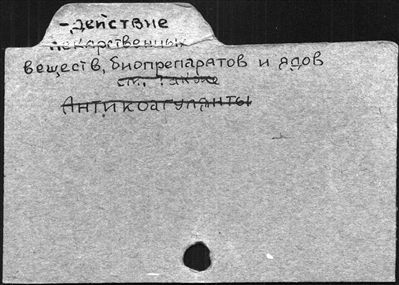 -действие
лекарственных
веществ, биопрепаратов и ядов
см. также
Антикоагулянты